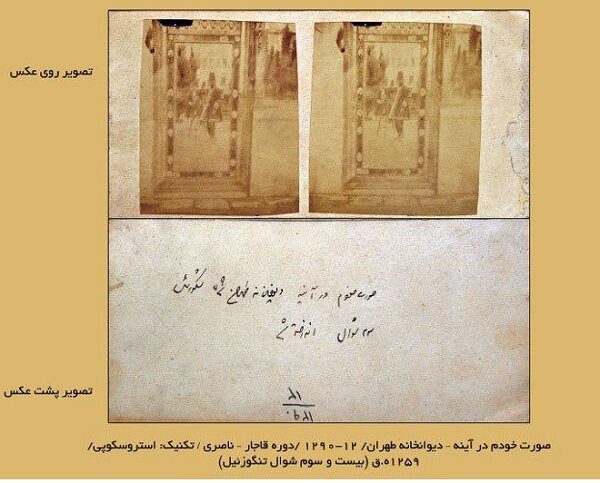 تصویر روی عکس
صورت خودم در آینه دیوانخانه طهران تنگوزئیل
شوال
تصویر پشت عکس
صورت خودم در آینه - دیوانخانه طهران/ ۱۲۹۰-۱۲ /دوره قاجار - ناصری / تکنیک: استروسکوپی/
۱۲۵۹ه.ق (بیست و سوم شوال تنگوزئیل)